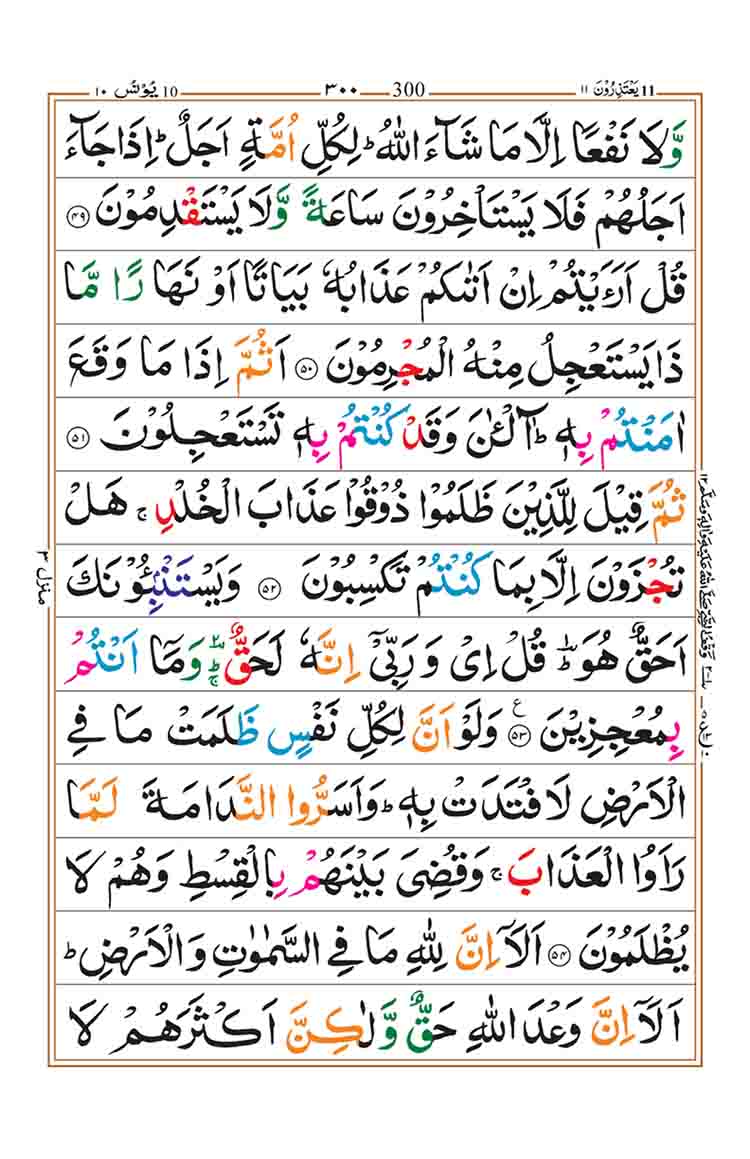 ۱۰ يُوْنُس 10 ۳۰۰ 300 ۱۱ يَعْتَذِرُوْنَ 11
وَّلَا نَفْعًا اِلَّا مَا شَآءَ اللّٰهُ ؕ لِكُلِّ اُمَّةٍ اَجَلٌ ؕ اِذَا جَآءَ
اَجَلُهُمْ فَلَا يَسْتَاْخِرُوْنَ سَاعَةً وَّلَا يَسْتَقْدِمُوْنَ ۴۹
قُلْ اَرَءَيْتُمْ اِنْ اَتٰىكُمْ عَذَابُهٗ بَيَاتًا اَوْ نَهَا رًا مَّا
ذَا يَسْتَعْجِلُ مِنْهُ الْمُجْرِمُوْنَ ۵۰ اَثُمَّ اِذَا مَا وَقَعَ
اٰمَنْتُمْ بِهٖ ؕ آٰلْـٰٔنَ وَقَدْ كُنْتُمْ بِهٖ تَسْتَعْجِلُوْنَ ۵۱
ثُمَّ قِيْلَ لِلَّذِيْنَ ظَلَمُوْا ذُوْقُوْا عَذَابَ الْخُلْدِ ۚ هَلْ
تُجْزَوْنَ اِلَّا بِمَا كُنْتُمْ تَكْسِبُوْنَ ۵۲ وَيَسْتَنْۢبِـُٔوْنَكَ
اَحَقٌّ هُوَ ؕ قُلْ اِىْ وَ رَبِّىْۤ اِنَّهٗ لَحَقٌّ ؔؕۚ وَمَاۤ اَنْتُمْ
بِمُعْجِزِيْنَ ۵۳ ع وَلَوْ اَنَّ لِكُلِّ نَفْسٍ ظَلَمَتْ مَا فِى
الْاَرْضِ لَافْتَدَتْ بِهٖ ؕ وَاَسَرُّوا النَّدَامَةَ لَمَّا
رَاَوُا الْعَذَابَ ۚ وَقُضِىَ بَيْنَهُمْ بِالْقِسْطِ وَهُمْ لَا
يُظْلَمُوْنَ ۵۴ اَلَاۤ اِنَّ لِلّٰهِ مَا فِى السَّمٰوٰتِ وَالْاَرْضِ ؕ
اَلَاۤ اِنَّ وَعْدَ اللّٰهِ حَقٌّ وَّلٰكِنَّ اَكْثَرَهُمْ لَا
منزل ۳